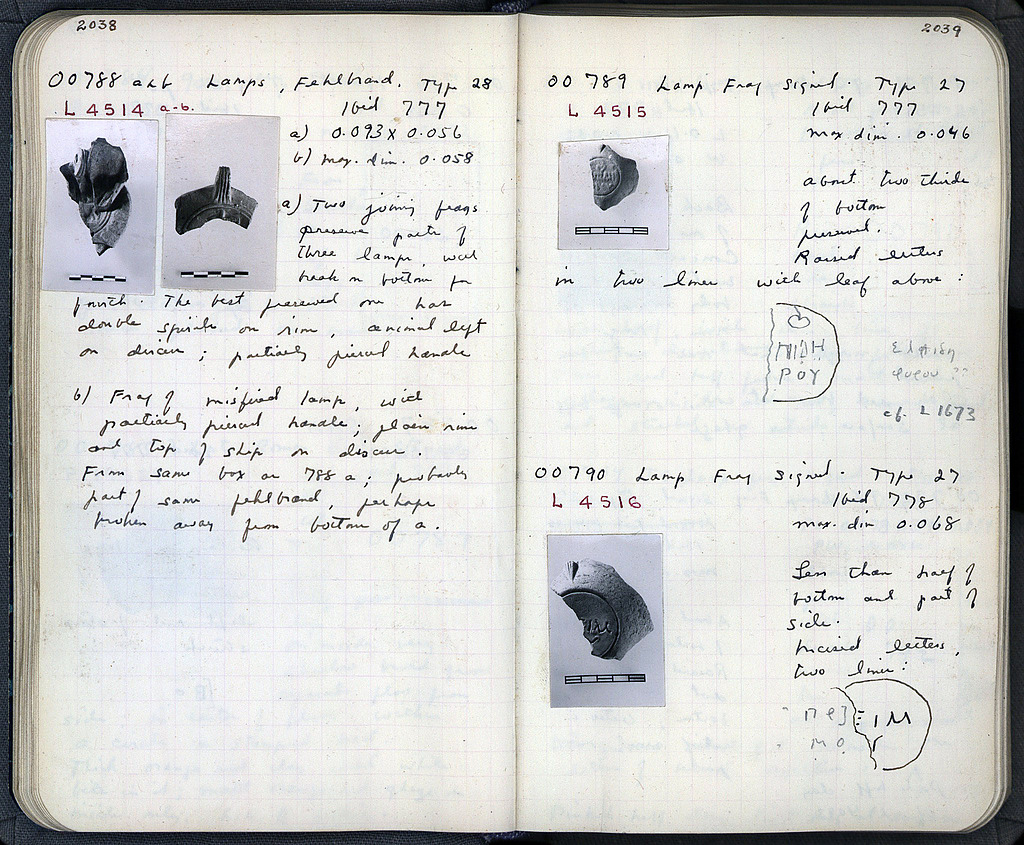 2038
OO 788 a & b Lamps, Fehlbrand. Type 28
L 4514 a-b. Ibid 777
a) 0.093 x 0.056
b) max. dim. 0.058
a) Two joining frags
preserve parts of
three lamps, with
break on bottom for
fourth. The best preserved one has
double spirals on rim, animal left
on discus; partially pierced handle
b) Frag of misfired lamp, with
partially pierced handle; plain rim
and top of ship on discus.
From same box as 788 a; probably
part of same fehlbrand, perhaps
broken away from bottom of a.
2039
OO 789 Lamp Frag Signed. Type 27
L 4515 Ibid 777
max dim 0.046
about two thirds
of bottom
preserved.
Raised letters
in two lines with leaf above:
ΠΙΔΗ
ΡΟΥ
ελπιδη
φορου ??
cf. L 1673
OO 790 Lamp Frag Signed. Type 27
L 4516 Ibid 778
max. dim 0.068
Less than half of
bottom and part of
side.
Incised letters,
two lines:
ΙΜ
ΜΟ